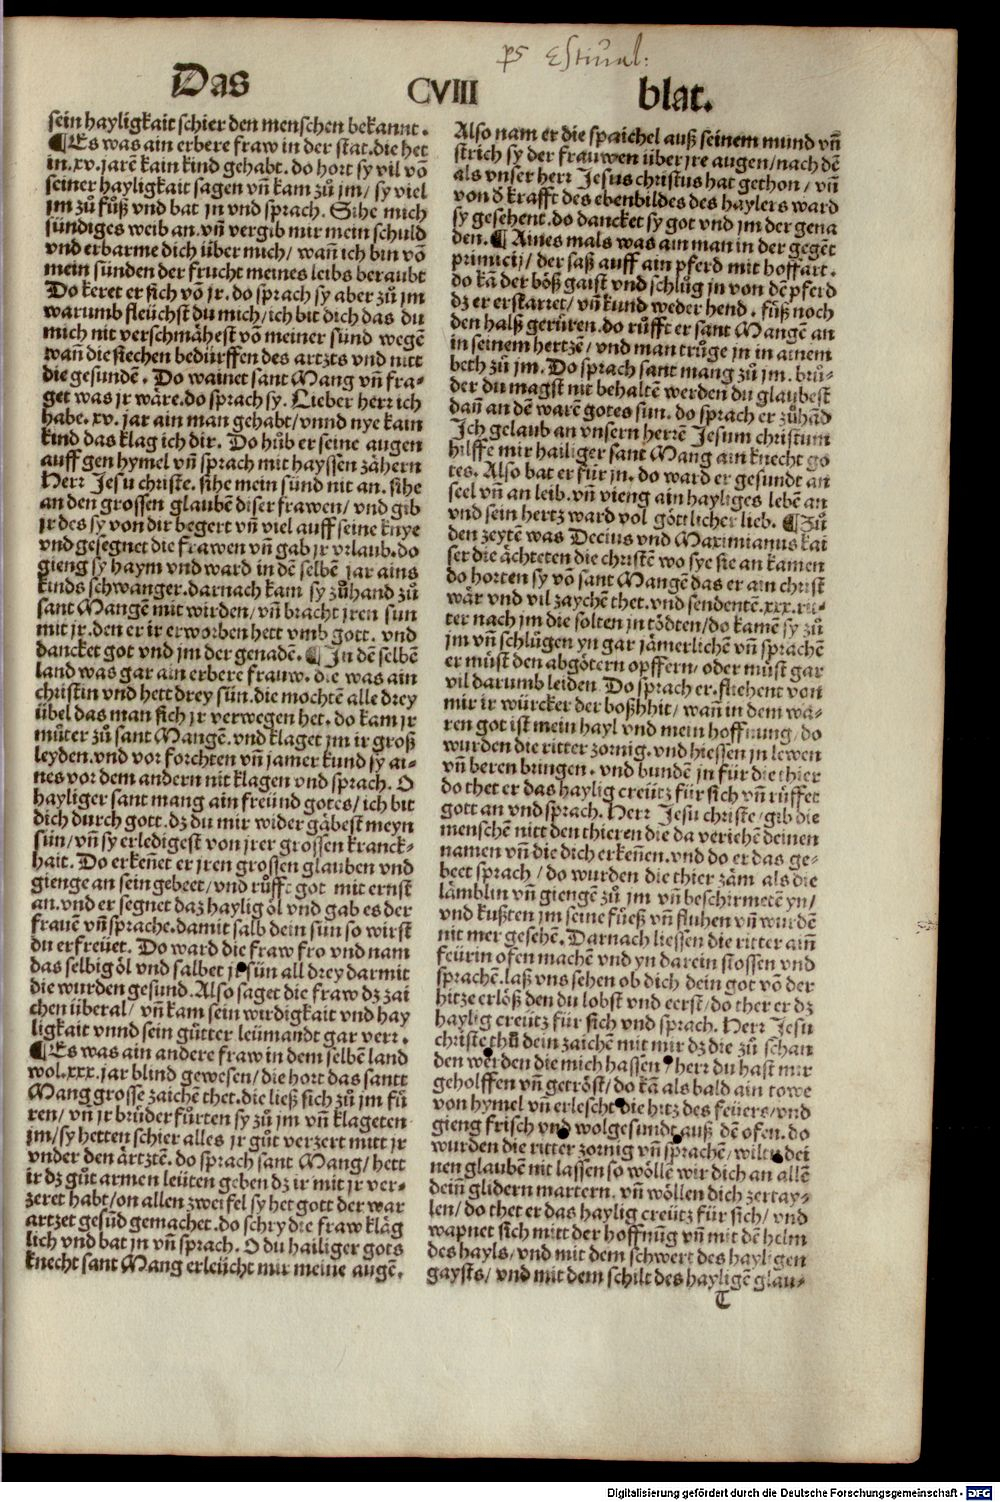 ps Estiual:
Das CVIII blat.
sein hayligkait schier den menschen bekannt.
¶Es was ain erbere fraw in der stat.die het
in.xv.jarē kain kind gehabt.do hort sy vil vō
seiner hayligkait sagen vñ kam zů jm/ sy viel
jm zů fůß vnd bat jn vnd sprach. Sihe mich
sündiges weib an.vñ vergib mir mein schuld
vnd erbarme dich über mich/ wañ ich bin vō
mein sünden der frucht meines leibs beraubt
Do keret er sich vō jr.do sprach sy aber zů jm
warumb fleüchst du mich/ich bit dich das du
mich nit verschmähest vō meiner sünd wegē
wañ die siechen bedürffen des artzts vnd nitt
die gesundē. Do wainet sant Mang vñ fra-
get was jr wäre.do sprach sy. Lieber herr ich
habe.xv.jar ain man gehabt/vnnd nye kain
kind das klag ich dir. Do hůb er seine augen
auff gen hymel vñ sprach mit hayssen zähern
Herr Jesu christe.sihe mein sünd nit an.sihe
an den grossen glaubē diser frawen/vnd gib
jr des sy von dir begert vñ viel auff seine knye
vnd gesegnet die frawen vñ gab jr vrlaub.do
gieng sy haym vnd ward in dē selbē jar ains
kinds schwanger.darnach kam sy zůhand zů
sant Mangē mit wirden/vñ bracht jren sun
mit jr.den er ir erworben hett vmb gott. vnd
dancket got vnd jm der genadē.¶Jn dē selbē
land was gar ain erbere frauw.die was ain
christin vnd hett drey sün.die mochtē alle drey
übel das man sich jr verwegen het.do kam jr
můter zů sant Mangē.vnd klaget jm ir groß
leyden.vnd vor forchten vñ jamer kund sy ai-
nes vor dem andern nit klagen vnd sprach. O
hayliger sant mang ain freünd gotes/ich bit
dich durch gott.dz du mir wider gäbest meyn
sün/vñ sy erledigest von jrer grossen kranck-
hait. Do erkeñet er jren grossen glauben vnd
gienge an sein gebeet/vnd růfft got mit ernst
an.vnd er segnet daz haylig öl vnd gab es der
frauē vñ sprache.damit salb dein sun so wirst
du erfreüet. Do ward die fraw fro vnd nam
das selbig öl vnd salbet jr sün all drey darmit
die wurden gesund.Also saget die fraw dz zai
chen überal/ vñ kam sein wirdigkait vnd hay
ligkait vnnd sein gůtter leümandt gar verr.
¶Es was ain andere fraw in dem selbē land
wol.xxx.jar blind gewesen/die hort das santt
Mang grosse zaichē thet.die ließ sich zů jm fů
ren/ vñ jr brůder fůrten sy zů jm vñ klageten
jm/sy hetten schier alles jr gůt verzert mitt jr
vnder den ärtztē.do sprach sant Mang/hett
ir dz gůt armen leüten geben dz ir mit jr ver-
zeret habt/on allen zweifel sy het gott der war
artzet gesūd gemachet.do schry die fraw kläg
lich vnd bat in vñ sprach. O du hailiger gots
knecht sant Mang erleücht mir meine augē.
Also nam er die spaichel auß seinem mund vñ
strich sy der frauwen über jre augen/nach dē
als vnser herr Jesus christus hat gethon/ vñ
von ď krafft des ebenbildes des haylers ward
sy gesehent.do dancket sy got vnd jm der gena
den.¶Aines mals was ain man in der gegēt
primicij/der saß auff ain pferd mit hoffart.
do kā der böß gaist vnd schlůg jn von dē pferd
dz er erstarret/vñ kund weder hend. fůß noch
den halß gerüren.do růfft er sant Mangē an
in seinem hertzē/vnd man trůge jn in ainem
beth zů jm.Do sprach sant mang zů jm. brů-
der du magst nit behaltē werden du glaubest
dañ an dē warē gotes sun.do sprach er zůhād
Jch gelaub an vnsern herrē Jesum christum
hilffe mir hailiger sant Mang ain knecht go
tes. Also bat er für in.do ward er gesundt an
seel vñ an leib.vñ vieng ain hayliges lebē an
vnd sein hertz ward vol göttlicher lieb. ¶Zů
den zeytē was Decius vnd Maximianus kai
ser die ächteten die christē wo sye sie an kamen
do horten sy vō sant Mangē das er ain christ
wär vnd vil zaychē thet.vnd sendentē.xxx.rit-
ter nach jm die solten in tödten/do kamē sy zů
jm vñ schlůgen yn gar jämerlichē vñ sprachē
er můst den abgötern opffern/oder můst gar
vil darumb leiden Do sprach er.fliehent von
mir ir würcker der boßhhit/ wañ in dem wa-
ren got ist mein hayl vnd mein hoffnung/do
wurden die ritter zornig.vnd hiessen jn lewen
vñ beren bringen. vnd bundē jn für die thier
do thet er das haylig creütz für sich vñ růffet
gott an vnd sprach. Herr Jesu christe/gib die
menschē nitt den thieren die da veriehē deinen
namen vñ die dich erkeñen.vnd do er das ge-
beet sprach / do wurden die thier zäm als die
lämblin vñ giengē zů jm vñ beschirmetē yn/
vnd kußten jm seine füeß vñ fluhen vñ wurdē
nit mer gesehē.Darnach liessen die ritter aiñ
feürin ofen machē vnd yn darein stossen vnd
sprachē.laß vns sehen ob dich dein got vō der
hitze erlöß den du lobst vnd eerst/do thet er dz
haylig creütz für sich vnd sprach. Herr Jesu
christe thů dein zaichē mit mir dz die zů schan
den werden die mich hassen herr du hast mir
geholffen vñ getröst/do kā als bald ain towe
von hymel vñ erlescht die hitz des feüers/vnd
gieng frisch vnd wolgesundt auß dē ofen.do
wurden die ritter zornig vñ sprachē/wiltu dei
nen glaubē nit lassen so wöllē wir dich an allē
deiñ glidern martern. vñ wöllen dich zertay-
len/do thet er das haylig creütz für sich/ vnd
wapnet sich mitt der hoffnūg vñ mit dē helm
des hayls/vnd mit dem schwert des hayligen
gaysts/ vnd mit dem schilt des hayligē glau-
T
Digitalisierung gefördert durch die Deutsche Forschungsgemeinschaft - DFG